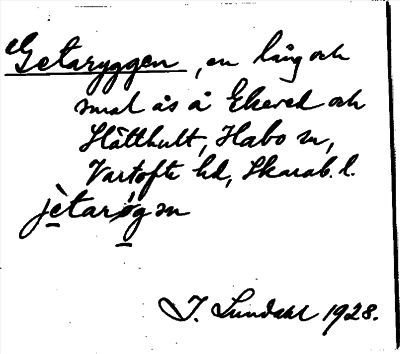 Getaryggen, en lång och
smal ås å Ekered och
Slätthult, Habo sn,
Vartofta hd, Skarab. l.
jètarǿgɜn
J. Lundahl 1928.